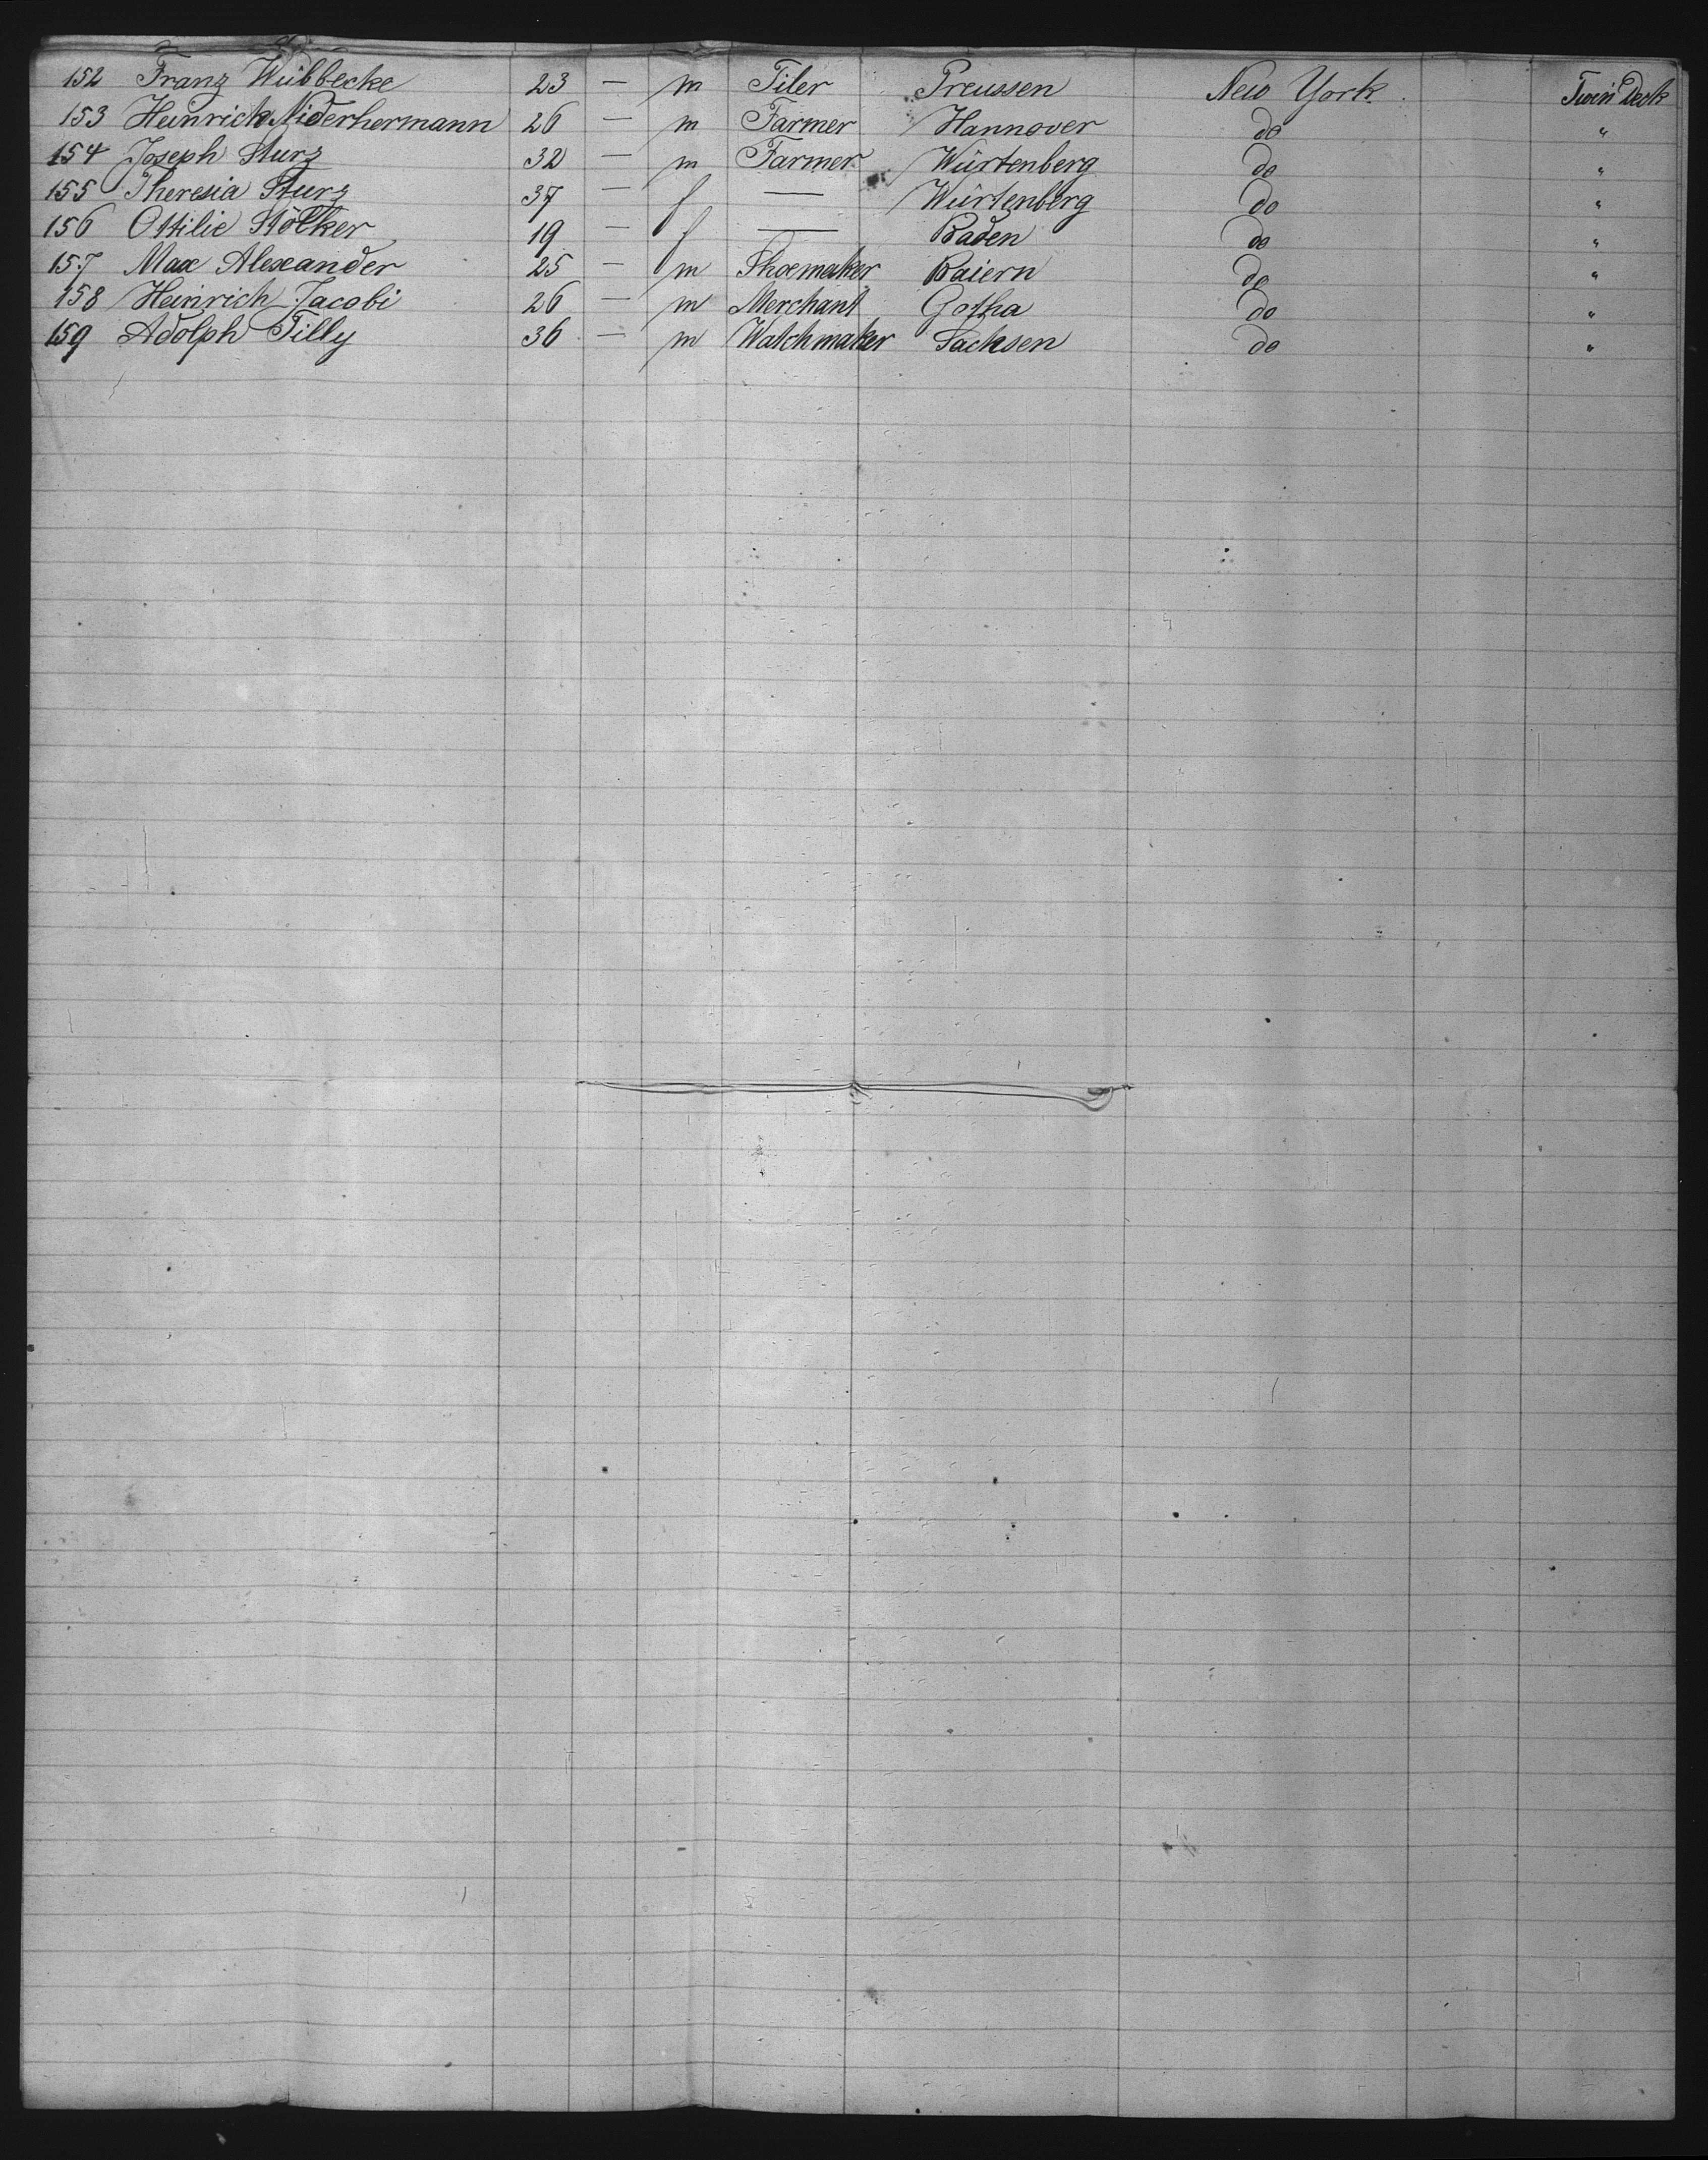 152 Franz Wübbecke 23 — m Tiler Preussen New York Twin Deck
153 Heinrich Niderhermann 26 — m Farmer Hannover do "
154 Joseph Sturz 32 — m Farmer Würtenberg do "
155 Theresia Sturz 37 — f — Würtenberg do "
156 Ottilie Stölker 19 — f — Baden do "
157 Max Alexander 25 — m Shoemaker Baiern do "
158 Heinrich Jacobi 26 — m Merchant Gotha do "
159 Adolph Tilly 36 — m Watchmaker Sachsen do "